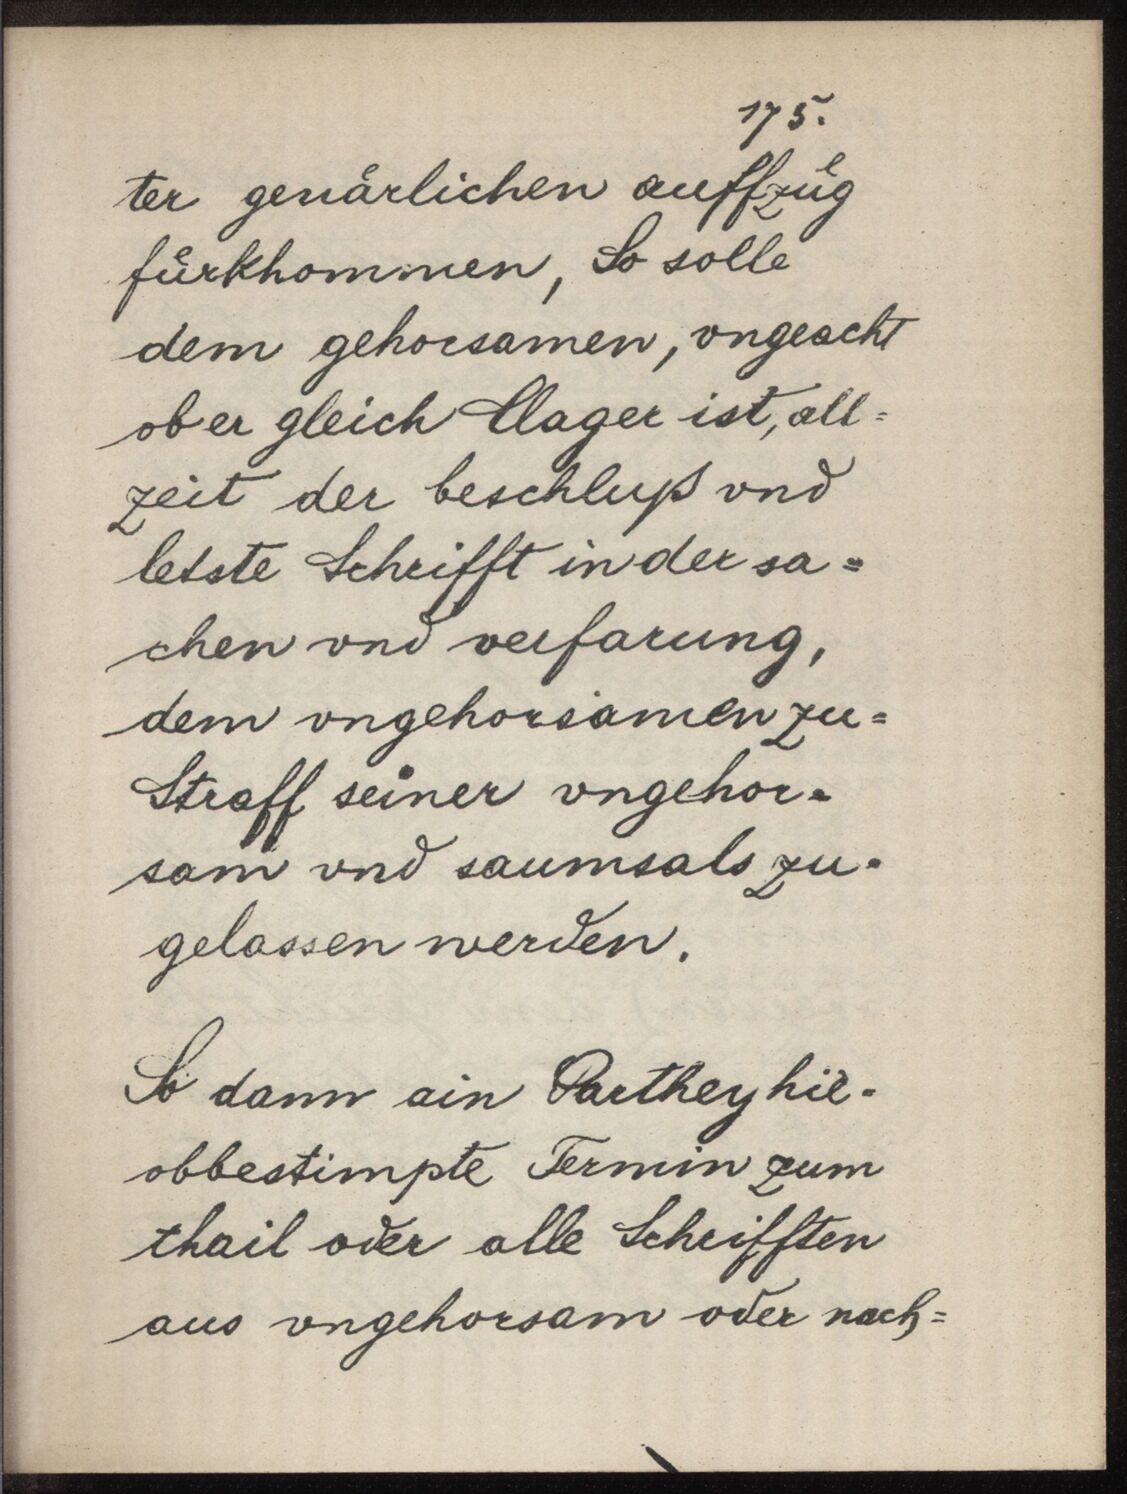 175.
ter geuårlichen auffzůg
fürkhommen, So solle
dem gehorsamen, vngeacht
ob er gleich Clager ist, all=
zeit der beschluß vnd
letste Schrifft in der sa=
chen vnd verfarung,
dem vngehorsamen zu=
Straff seiner vngehor=
sam vnd saumsals zu=
gelassen werden.
So dann ain Parthey hie=
obbestimpte Termin zum
thail oder alle Schrifften
aus vngehorsam oder nach=